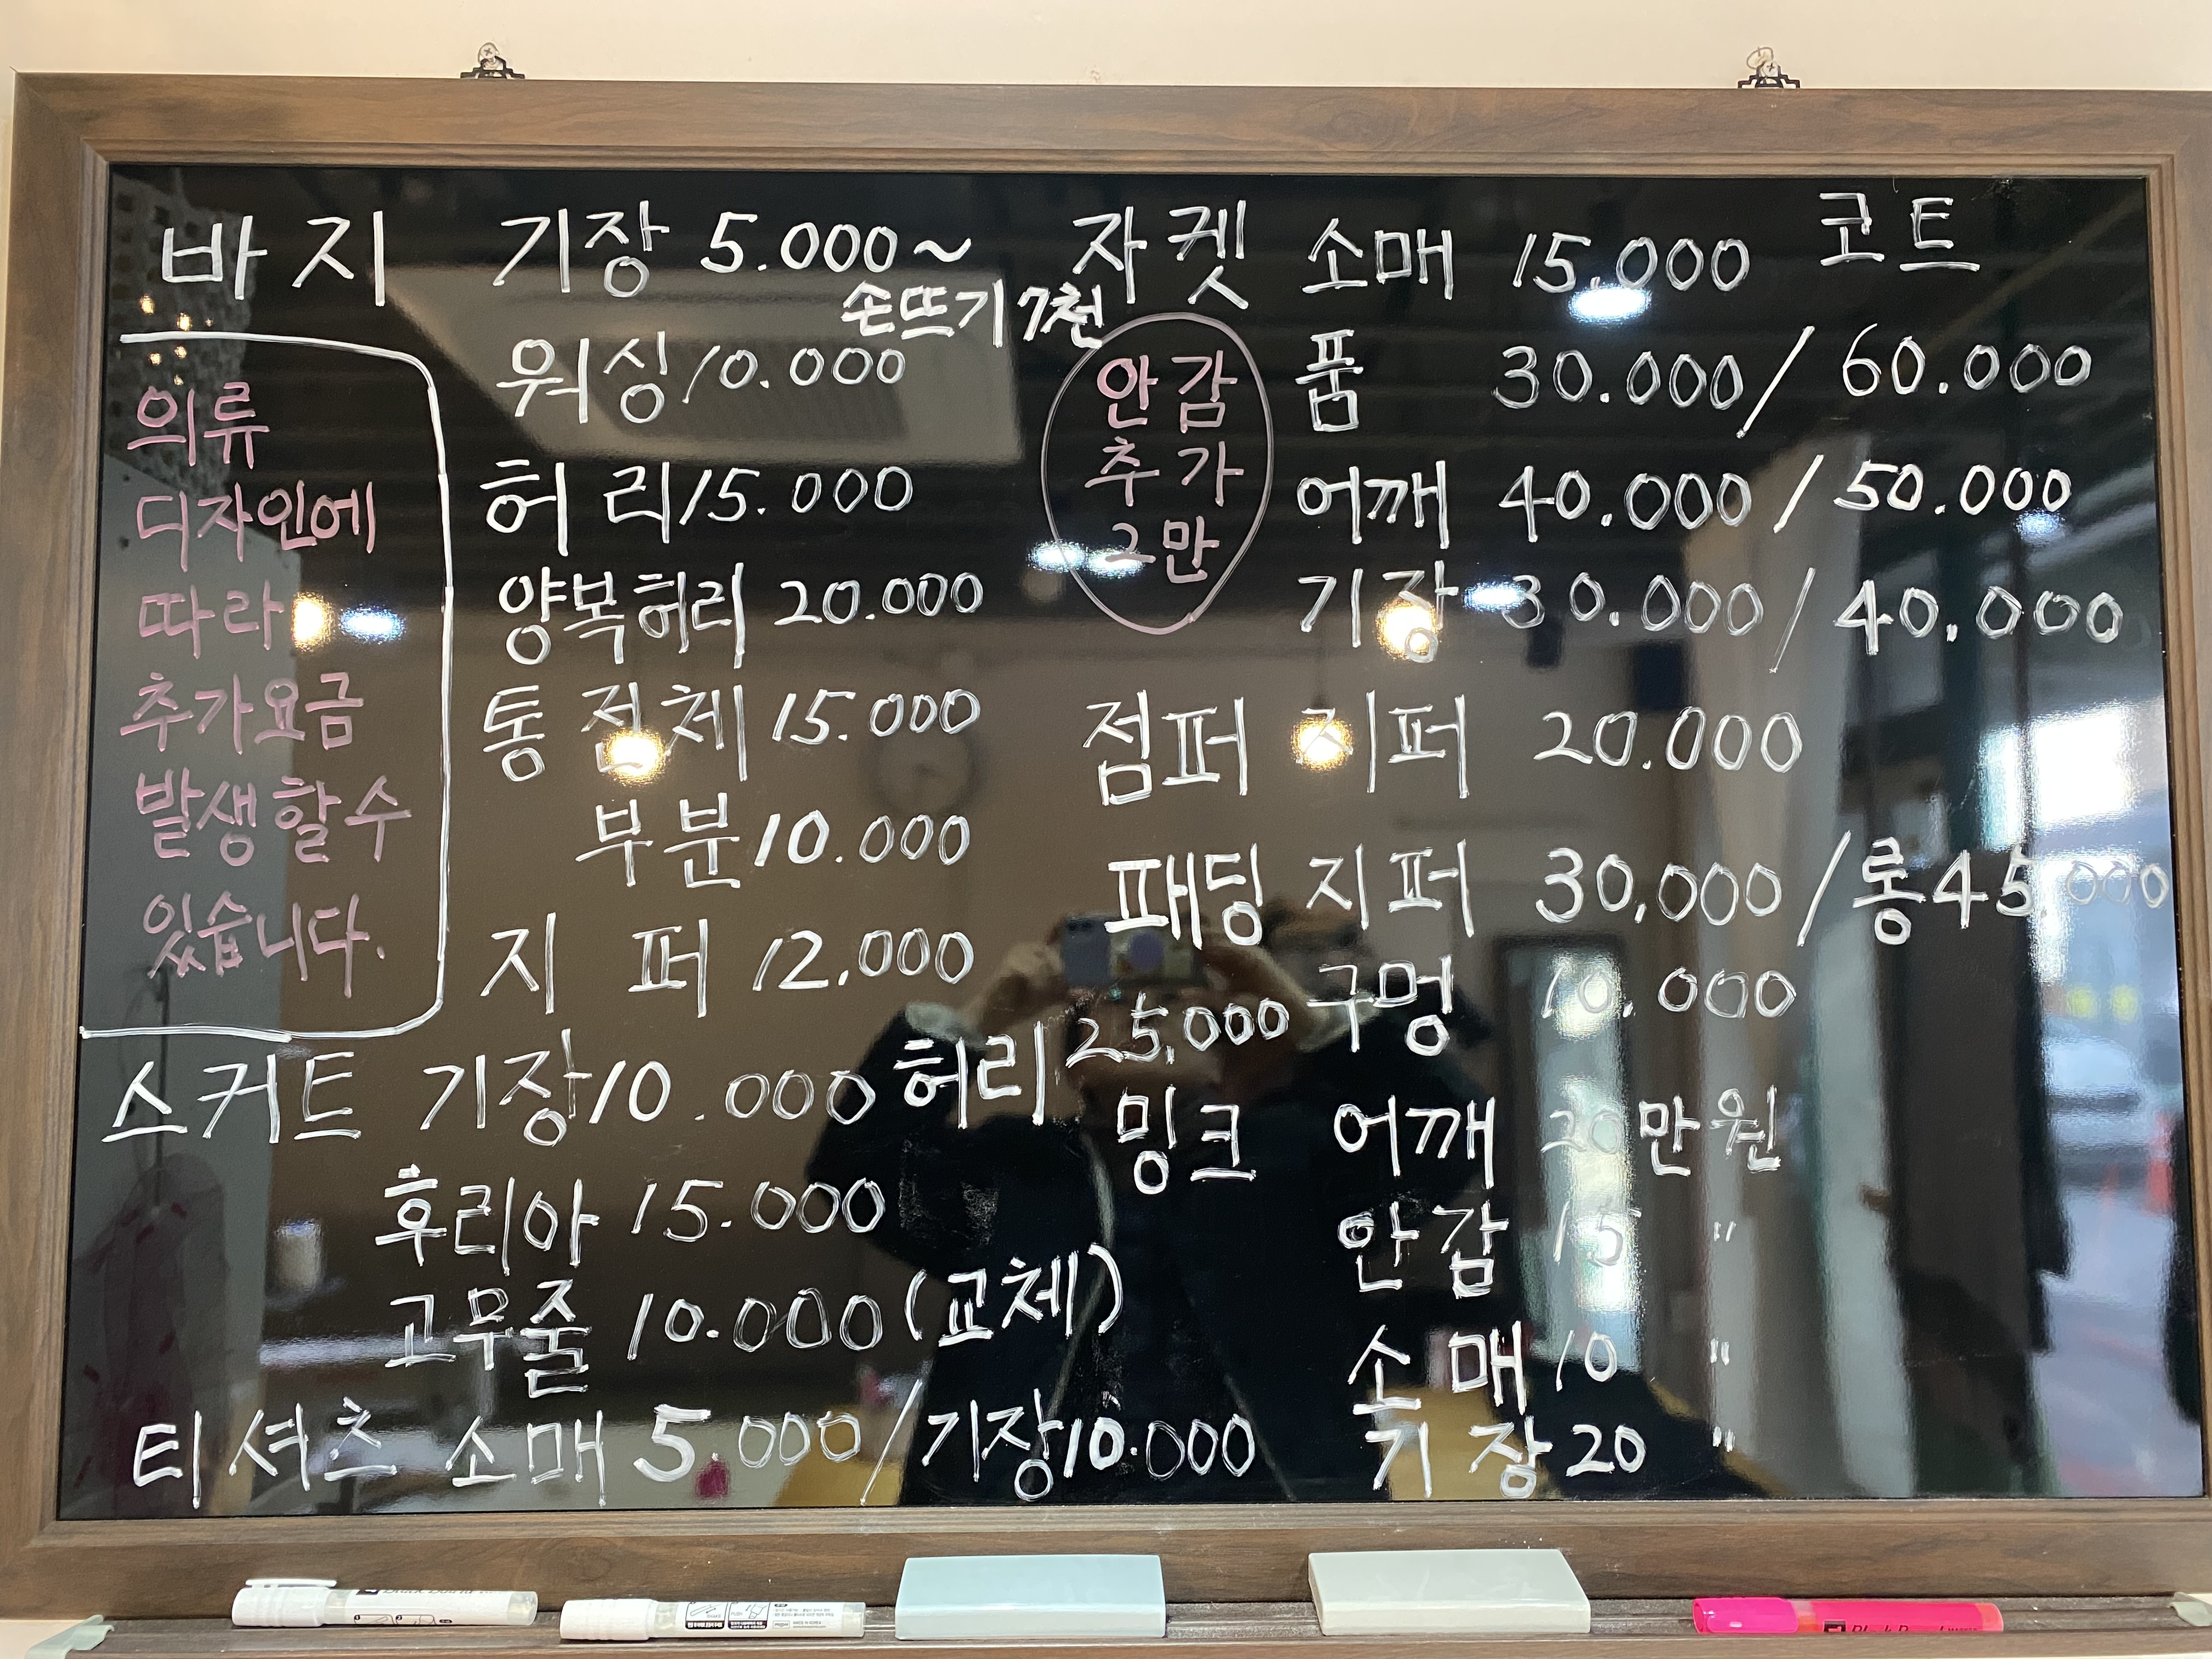 바지 기장 5.000~
손뜨기 7천
워싱 10.000
허리 15.000
양복허리 20.000
통 전체 15.000
부분 10.000
지퍼 12.000
의류
디자인에
따라
추가요금
발생할수
있습니다.
스커트 기장 10.000 허리 25,000
후리아 15.000
고무줄 10.000 (교체)
티셔츠 소매 5.000/기장 10.000
자켓 소매 15.000 코트
안감
추가
2만
품 30.000/60.000
어깨 40.000/50.000
기장 30.000/40.000
점퍼 지퍼 20.000
패딩 지퍼 30,000/롱 45,000
구멍 10.000
밍크 어깨 20만원
안감 15 "
소매 10 "
기장 20 "